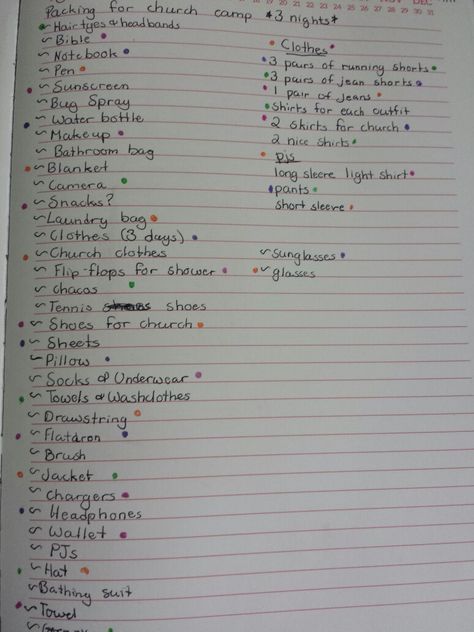 NOV DEC
20 21 22 23 24 25 26 27 28 29 30 31
Packing for church camp *3 nights*
~ Hairtyes & headbands
~ Bible
~ Notebook
~ Pen
~ Sunscreen
~ Bug Spray
~ Water bottle
~ Makeup
~ Bathroom bag
~ Blanket
~ Camera
~ Snacks?
~ Laundry bag
~ Clothes (3 days)
~ Church clothes
~ Flip-flops for shower
~ Chacos
~ Tennis shoes
~ Shoes for church
~ Sheets
~ Pillow
~ Socks & Underwear
~ Towels & Washclothes
~ Drawstring
~ Flatiron
~ Brush
~ Jacket
~ Chargers
~ Headphones
~ Wallet
~ PJs
~ Hat
~ Bathing suit
~ Towel
Clothes
3 pairs of running shorts
3 pairs of jean shorts
1 pair of jeans
Shirts for each outfit
2 skirts for church
2 nice shirts
pjs
long sleeve light shirt
pants
short sleeve
~ sunglasses
~ glasses